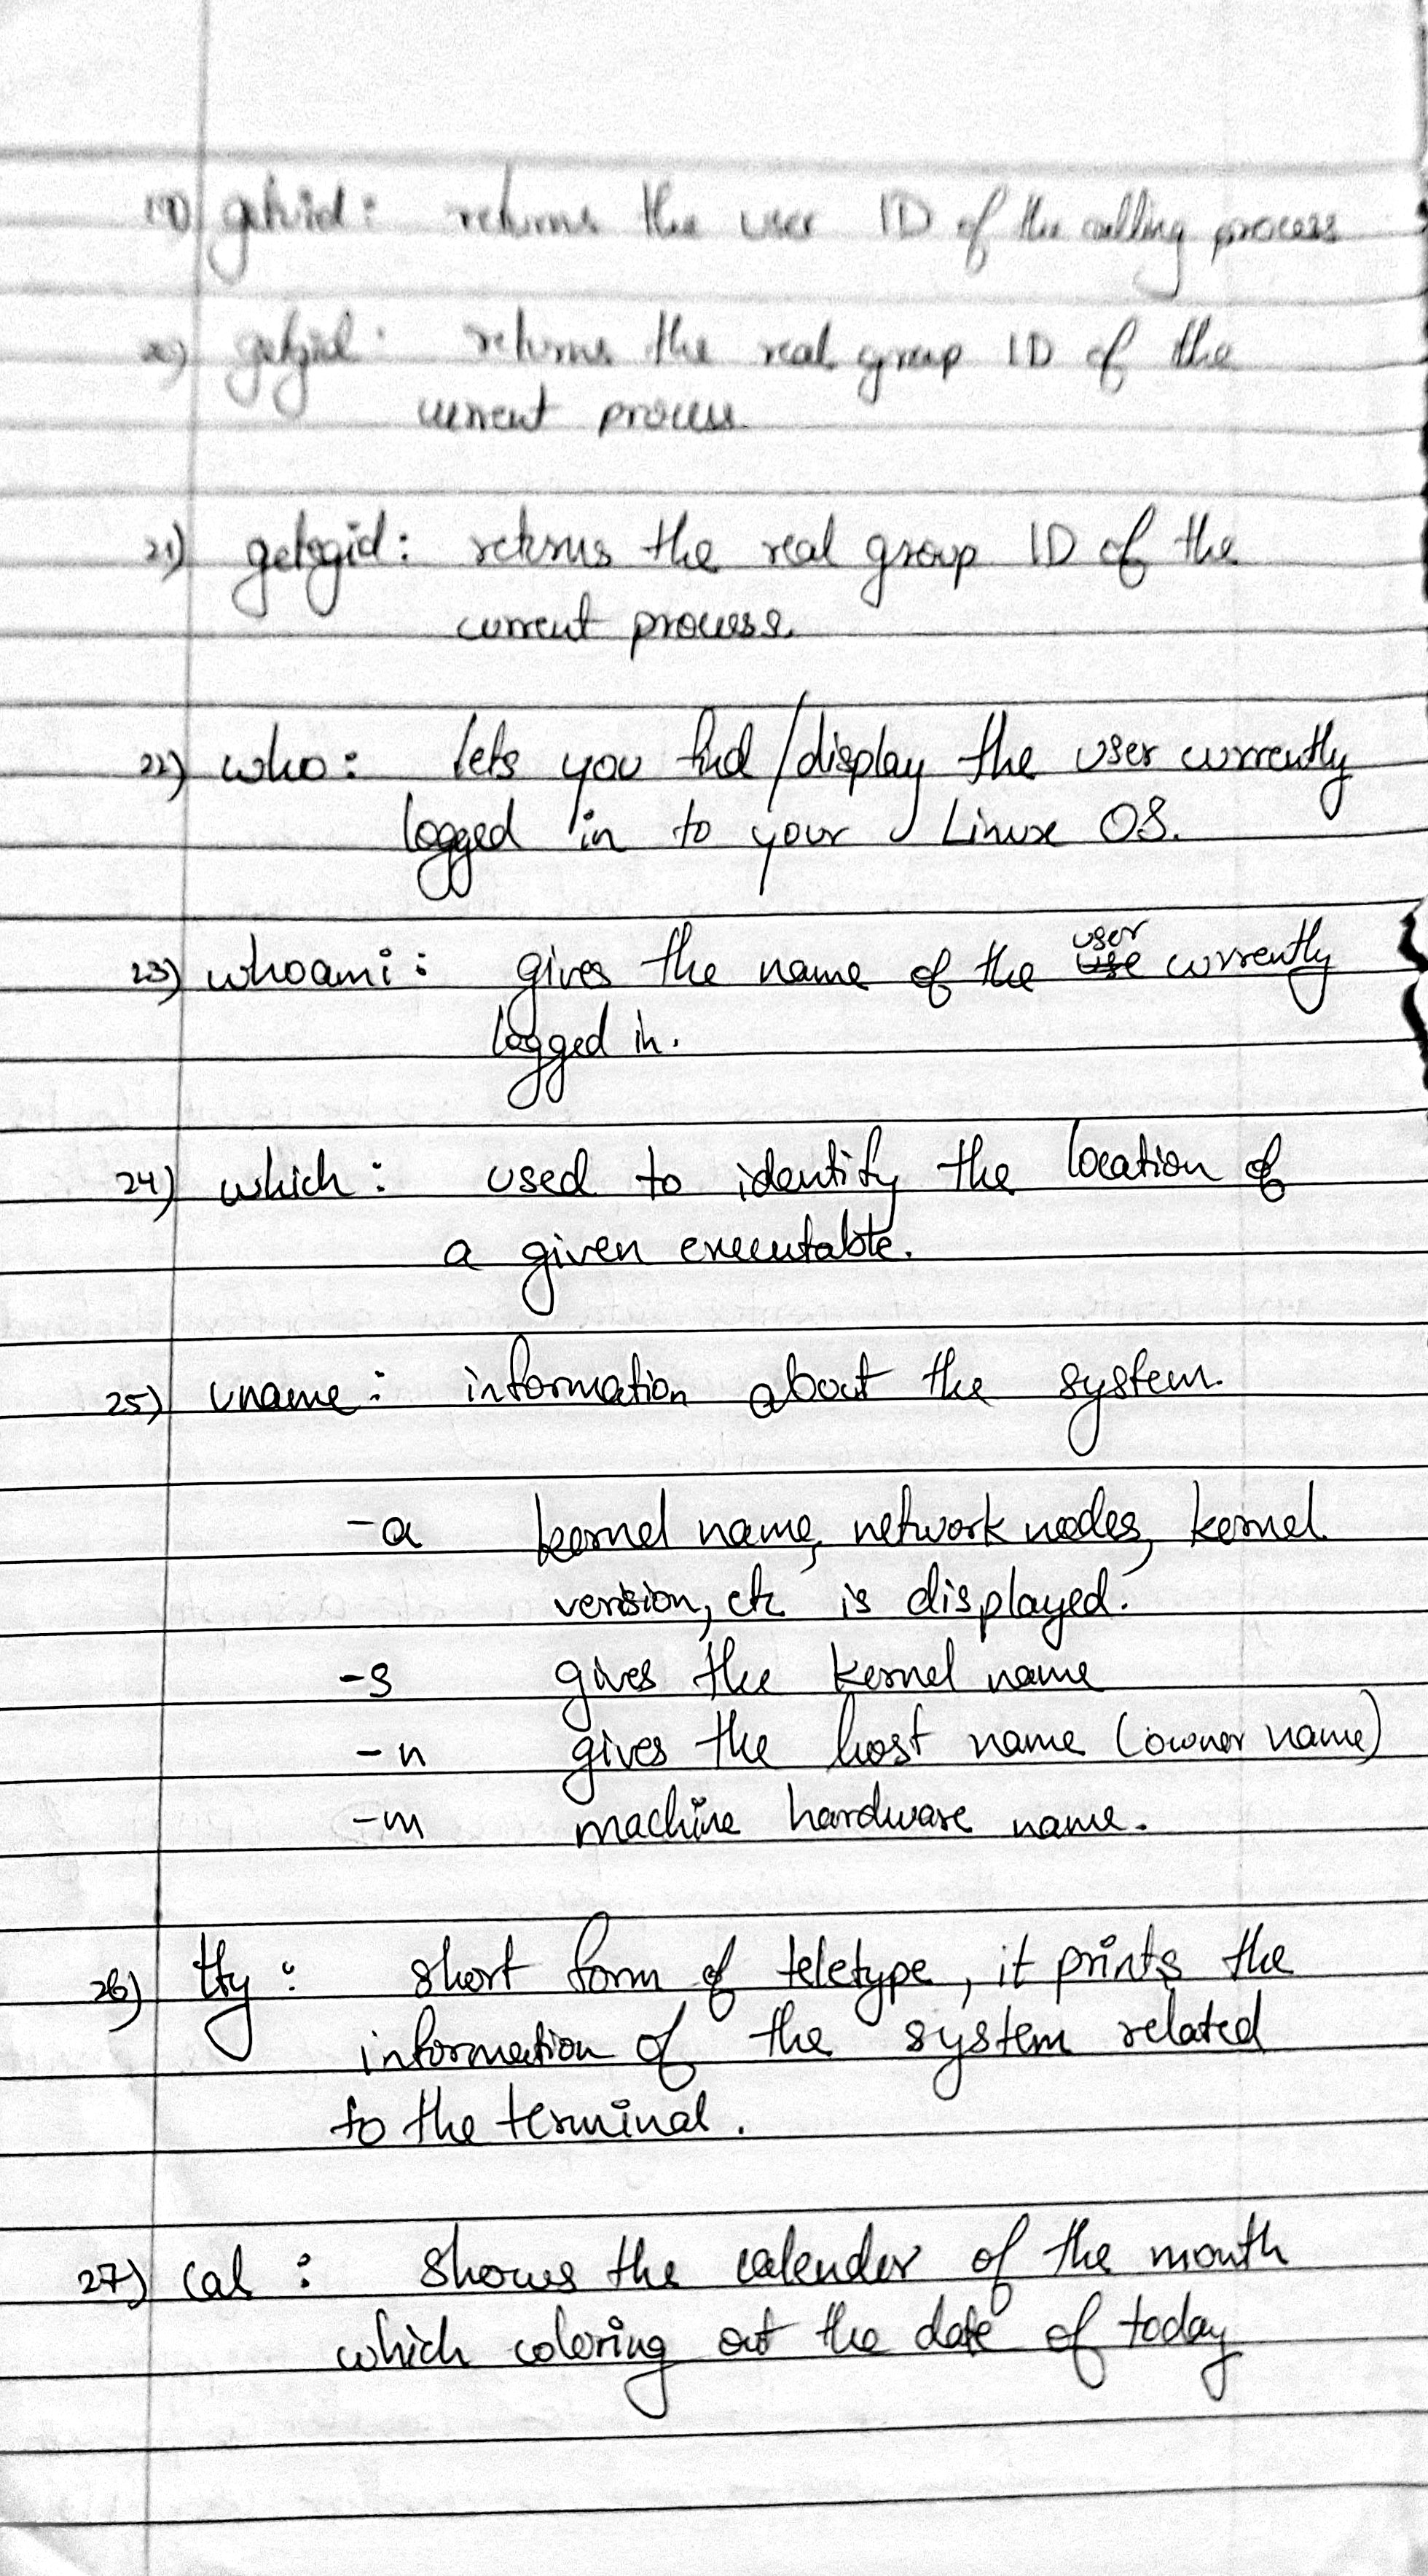 19) getuid: returns the user ID of the calling process
20) getgid: returns the real group ID of the
current process.
21) getegid: returns the real group ID of the
current process.
22) who: lets you find/display the user currently
logged in to your Linux OS.
23) whoami: gives the name of the user currently
logged in.
24) which: used to identify the location of
a given executable.
25) uname: information about the system.
-a kernel name, network nodes, kernel
version, etc is displayed.
-s gives the kernel name
-n gives the host name (owner name)
-m machine hardware name.
26) tty: short form of teletype, it prints the
information of the system related
to the terminal.
27) cal: shows the calender of the month
which coloring out the date of today